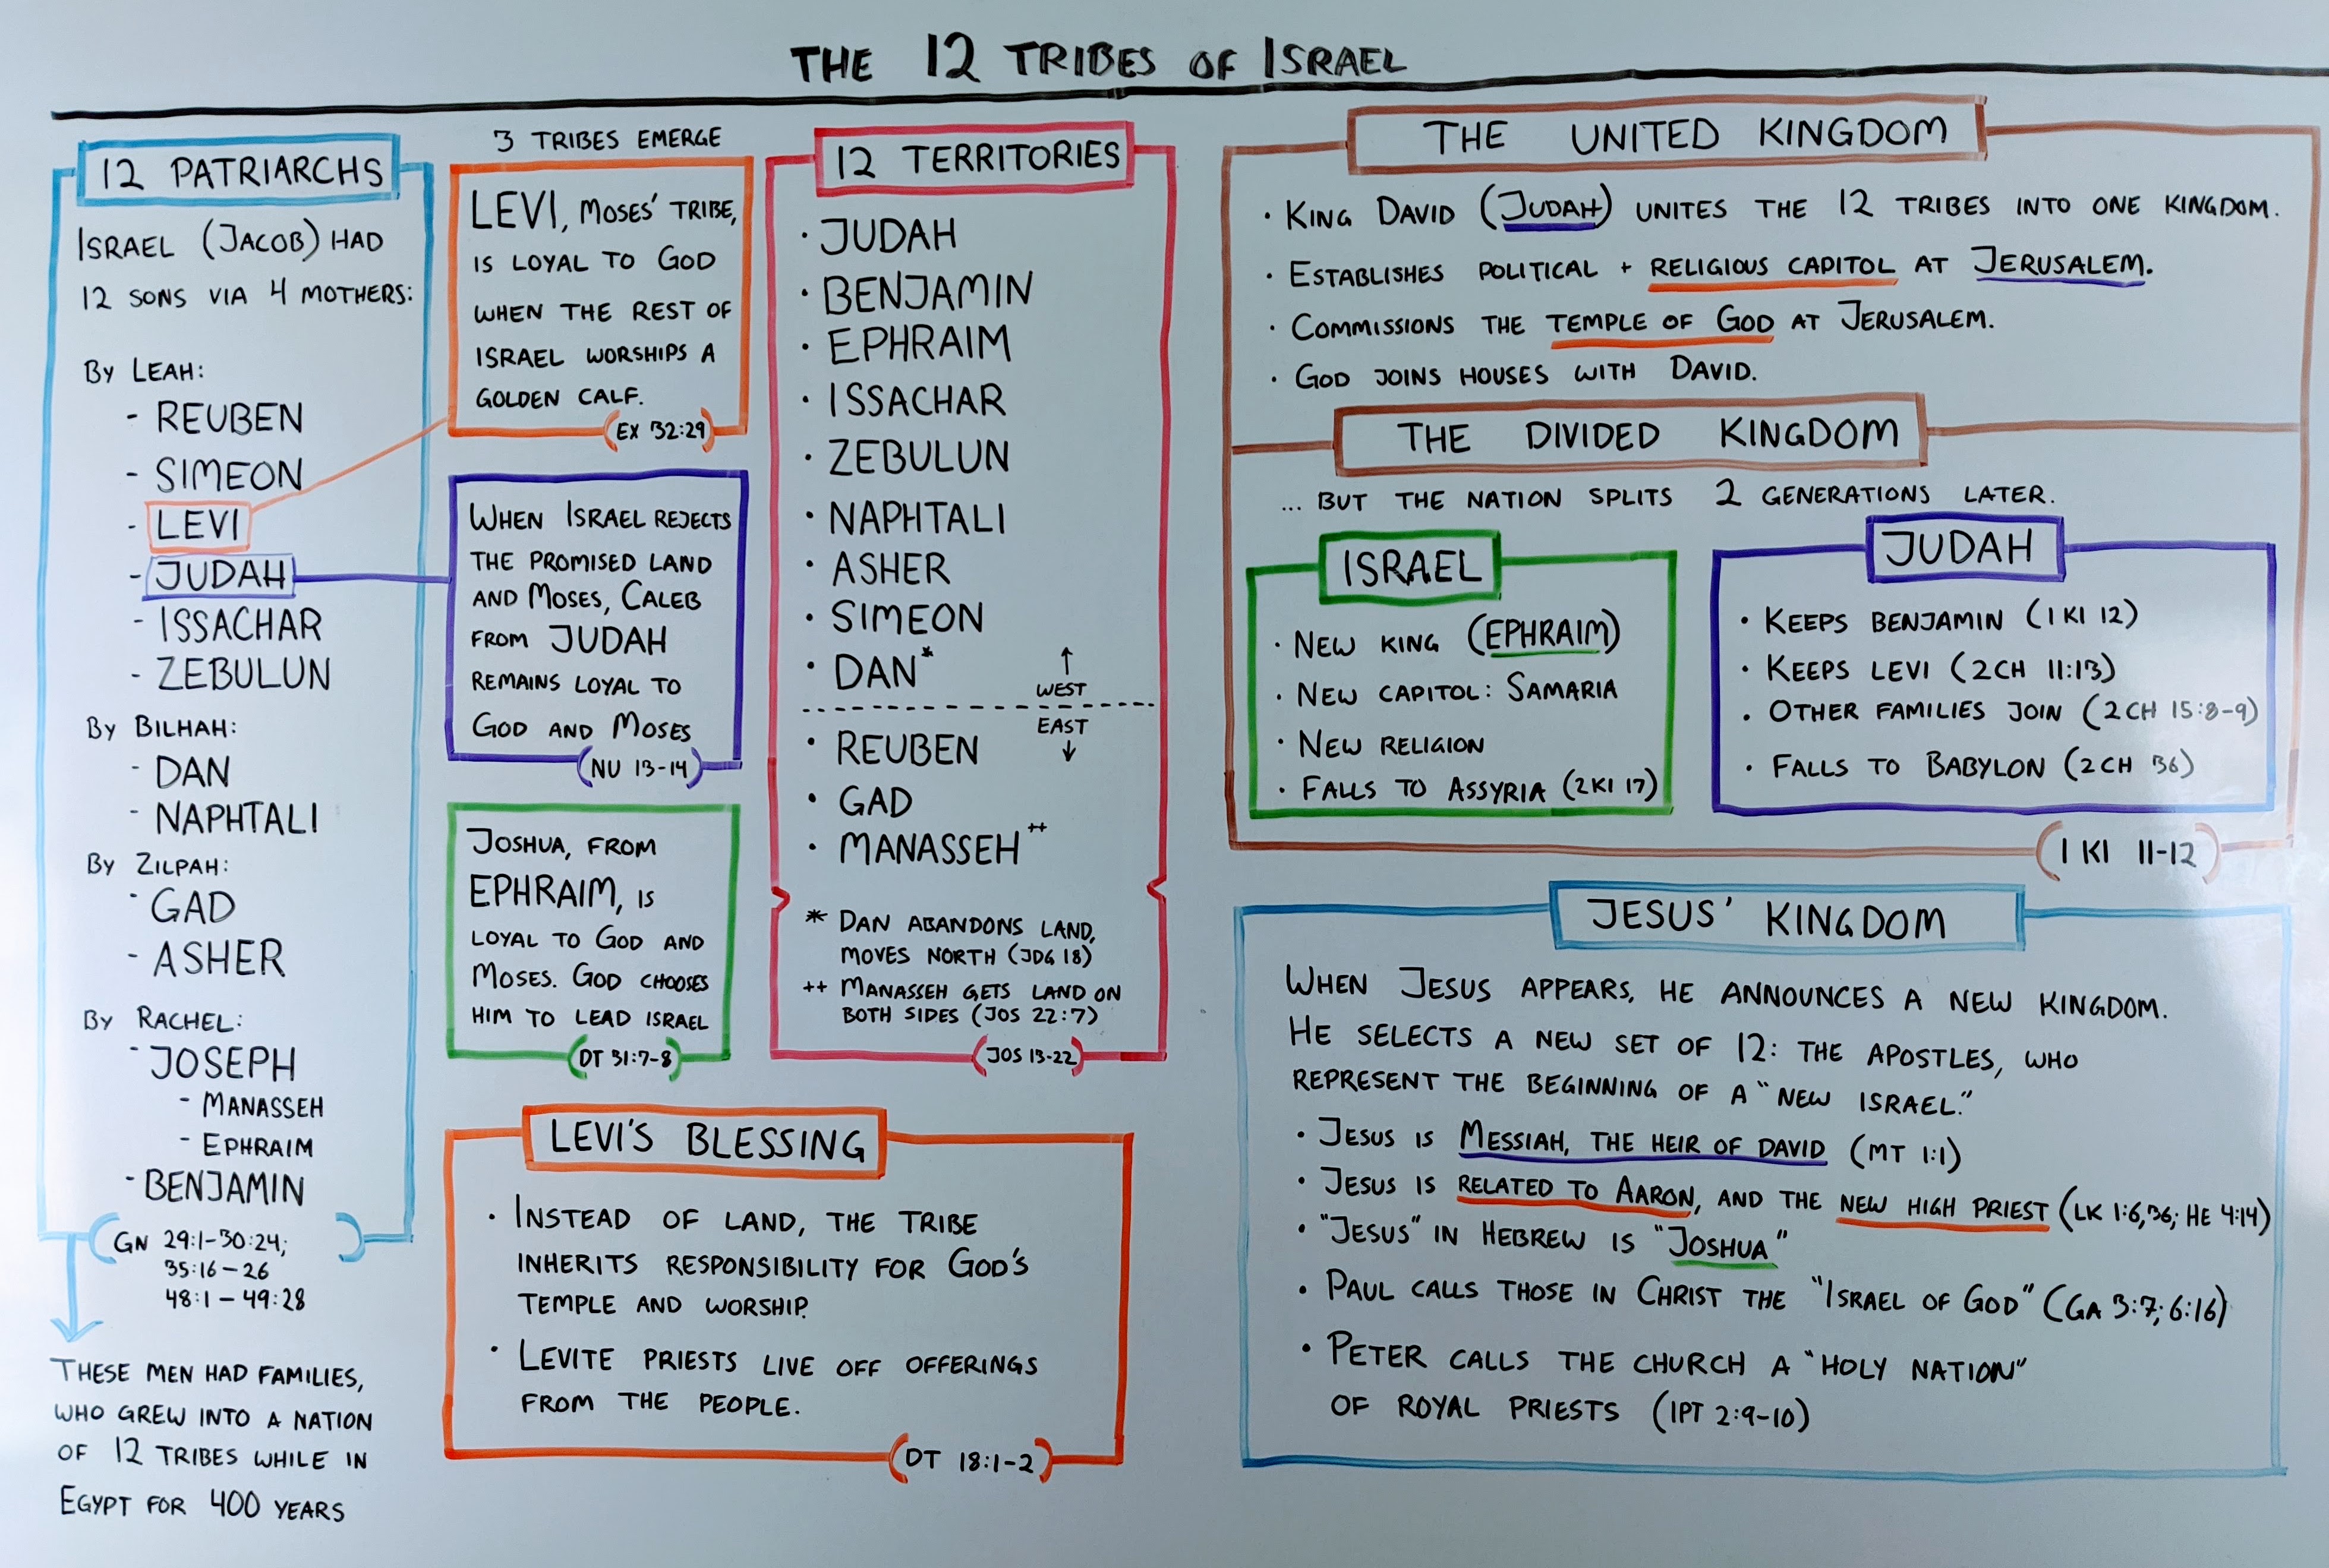 THE 12 TRIBES OF ISRAEL
12 PATRIARCHS
ISRAEL (JACOB) HAD
12 SONS VIA 4 MOTHERS:
BY LEAH:
- REUBEN
- SIMEON
- LEVI
- JUDAH
- ISSACHAR
- ZEBULUN
BY BILHAH:
- DAN
- NAPHTALI
BY ZILPAH:
- GAD
- ASHER
BY RACHEL:
- JOSEPH
- MANASSEH
- EPHRAIM
- BENJAMIN
(GN 29:1-30:24;
35:16-26
48:1-49:28)
THESE MEN HAD FAMILIES,
WHO GREW INTO A NATION
OF 12 TRIBES WHILE IN
EGYPT FOR 400 YEARS
3 TRIBES EMERGE
LEVI, MOSES' TRIBE,
IS LOYAL TO GOD
WHEN THE REST OF
ISRAEL WORSHIPS A
GOLDEN CALF.
(EX 32:29)
WHEN ISRAEL REJECTS
THE PROMISED LAND
AND MOSES, CALEB
FROM JUDAH
REMAINS LOYAL TO
GOD AND MOSES
(NU 13-14)
JOSHUA, FROM
EPHRAIM, IS
LOYAL TO GOD AND
MOSES. GOD CHOOSES
HIM TO LEAD ISRAEL
(DT 31:7-8)
12 TERRITORIES
• JUDAH
• BENJAMIN
• EPHRAIM
• ISSACHAR
• ZEBULUN
• NAPHTALI
• ASHER
• SIMEON
• DAN*
↑
WEST
EAST
↓
• REUBEN
• GAD
• MANASSEH++
* DAN ABANDONS LAND,
MOVES NORTH (JDG 18)
++ MANASSEH GETS LAND ON
BOTH SIDES (JOS 22:7)
(JOS 13-22)
LEVI'S BLESSING
• INSTEAD OF LAND, THE TRIBE
INHERITS RESPONSIBILITY FOR GOD'S
TEMPLE AND WORSHIP.
• LEVITE PRIESTS LIVE OFF OFFERINGS
FROM THE PEOPLE.
(DT 18:1-2)
THE UNITED KINGDOM
• KING DAVID (JUDAH) UNITES THE 12 TRIBES INTO ONE KINGDOM.
• ESTABLISHES POLITICAL + RELIGIOUS CAPITOL AT JERUSALEM.
• COMMISSIONS THE TEMPLE OF GOD AT JERUSALEM.
• GOD JOINS HOUSES WITH DAVID.
THE DIVIDED KINGDOM
... BUT THE NATION SPLITS 2 GENERATIONS LATER.
ISRAEL
• NEW KING (EPHRAIM)
• NEW CAPITOL: SAMARIA
• NEW RELIGION
• FALLS TO ASSYRIA (2KI 17)
JUDAH
• KEEPS BENJAMIN (1 KI 12)
• KEEPS LEVI (2CH 11:13)
• OTHER FAMILIES JOIN (2CH 15:8-9)
• FALLS TO BABYLON (2CH 36)
(1 KI 11-12)
JESUS' KINGDOM
WHEN JESUS APPEARS, HE ANNOUNCES A NEW KINGDOM.
HE SELECTS A NEW SET OF 12: THE APOSTLES, WHO
REPRESENT THE BEGINNING OF A "NEW ISRAEL."
• JESUS IS MESSIAH, THE HEIR OF DAVID (MT 1:1)
• JESUS IS RELATED TO AARON, AND THE NEW HIGH PRIEST (LK 1:6,36; HE 4:14)
• "JESUS" IN HEBREW IS "JOSHUA"
• PAUL CALLS THOSE IN CHRIST THE "ISRAEL OF GOD" (GA 3:7; 6:16)
• PETER CALLS THE CHURCH A "HOLY NATION"
OF ROYAL PRIESTS (1PT 2:9-10)